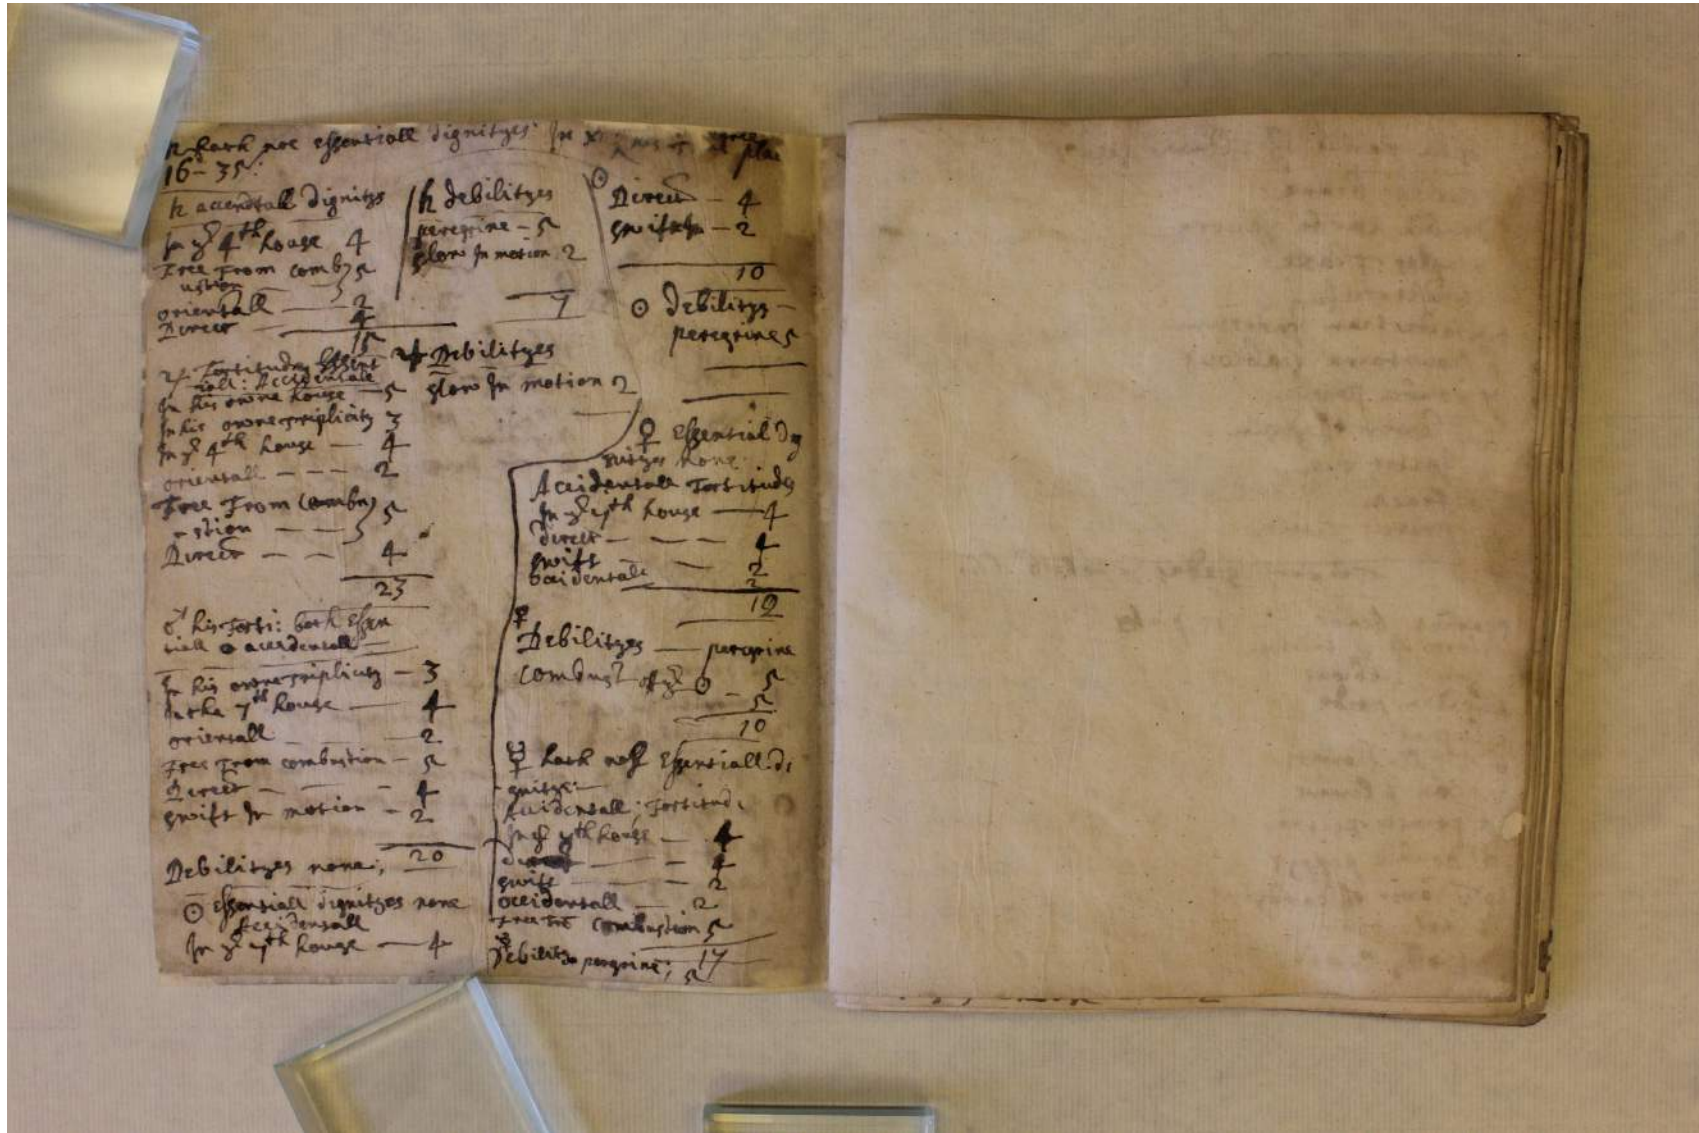 ♄ hath not essentiall dignityes In
16 - 35:
♄ accentall dignitys
In yͤ 4th house 4
Free From comb} 5
ustion
orientall — 2
Direct — 4
15
♃ Fortitudes Essent
iall: Accidentale
In his owne house — 5
In his owne Triplicity 3
In yͤ 4th house — 4
orientall — — — 2
Free From Combu} 5
stion — —
Direct — — 4
23
♂ his Forti: both Essen
tiall accidentall
In his owne Triplicity — 3
In the 7th house — 4
orientall — 2
Free From combustion — 5
Direct — — 4
swift In motion — 2
20
Debilityes none;
☉ essentiall dignityes none
Accidentall
In yͤ 7th house — 4
♄ debilityes
peregrine — 5
slow In motion 2
7
♃ Debilityes
slow In motion 2
☉
Direct — 4
swift — 2
10
☉ debilitys —
peregrine 5
♀ Essential Dig
nityes None
Accidentall Fortitudes
In yͤ 7th house — 4
direct — — — 4
swift — 2
occidentall 2
12
♀
Debilityes — peregrine
combust of yͤ ☉ — 5
5
10
☿ hath not Essentiall di
gnitye:
Accidentall; Fortitud
In yͤ 7th house — 4
— — 4
swift — — 2
occidentall — 2
Free Frō combustion 5
17
☿
Debility peregrine; 5